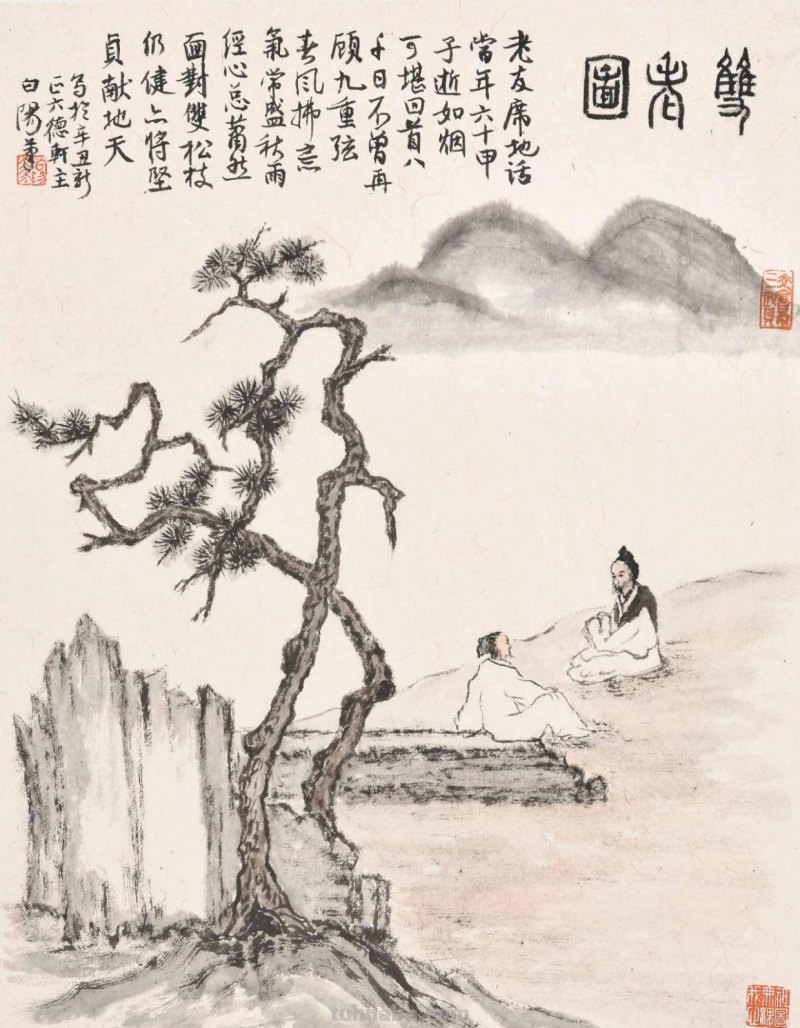 雙老圖
老友席地話
當年六十甲
子逝如烟
可堪回首八
千日不曾再
顧九重弦
春風拂志
氣常盛秋雨
經心总蕭然
面對雙松枝
仍健亦將堅
貞献地天
写於辛丑新
正六德軒主
白陽